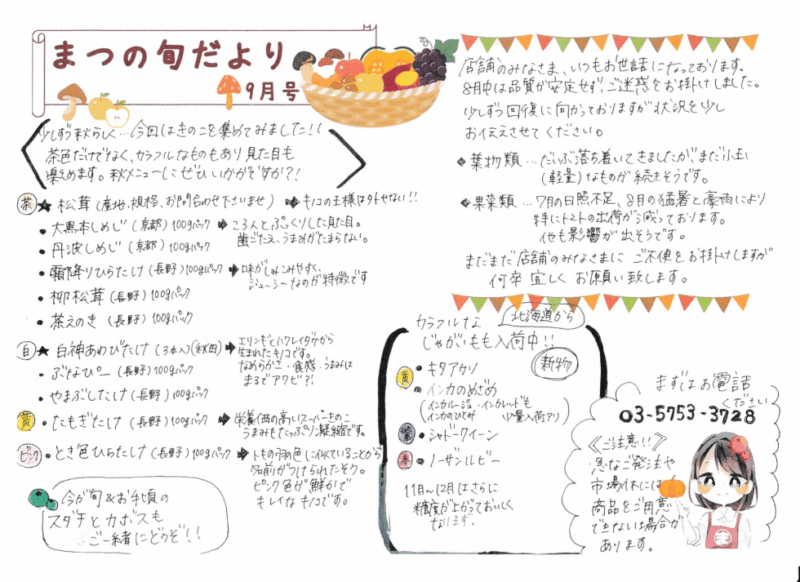 まつの旬だより
9月号
少しずつ秋らしく…今回はきのこを集めてみました!!
茶色だけでなく、カラフルなものもあり見た目も
楽しめます。秋メニューにぜひいかがですか?!
茶 ★ 松茸(産地、規格、お問い合わせ下さいませ) ➡ キノコの王様は外せない!!
・大黒本しめじ(京都)100gパック ➡ ころんとぷっくりした見た目。
歯ごたえ、うまみがたまらない。
・丹波しめじ(京都)100gパック
・霜降りひらたけ(長野)100gパック ➡ 味がしみこみやすく、
ジューシーなのが特徴です
・柳松茸(長野)100gパック
・茶えのき(長野)100gパック
白 ★ 白神あわびたけ(3本入)(秋田) ➡ エリンギとバクレイタケから
生まれたキノコです。
なめらかさ・食感・うまみは
まるでアワビ?!
・ぶなぴー(長野)100gパック
・やまぶしたけ(長野)100gパック
黄 ・たもぎたけ(長野)100gパック ➡ 栄養価の高いスーパーきのこ
うまみもたっぷり凝縮です。
ピンク ・とき色ひらたけ(長野)100gパック ➡ トキの羽の色に似ていることから
名前がつけられたそう。
ピンク色が鮮やかで
キレイなキノコです。
今が旬&お手頃の
スダチとカボスも
ご一緒にどうぞ!!
店舗のみなさま、いつもお世話になっております。
8月中は品質が安定せず、ご迷惑をお掛けしました。
少しずつ回復に向かっておりますが状況を少し
お伝えさせてください。
◆葉物類…だいぶ落ち着いてきましたが、まだ小玉
(軽量)なものが続きそうです。
◆果菜類…7月の日照不足、8月の猛暑と豪雨により
特にトマトの出荷が減っております。
他も影響が出そうです。
まだまだ店舗のみなさまにご不便をお掛けしますが
何卒宜しくお願い致します。
カラフルな 北海道から
じゃがいもも入荷中!!
新物
黄 ・キタアカリ
・インカのめざめ
(インカルージュ・インカレッド も
インカのひとみ 少量入荷アリ)
紫 ・シャドークイーン
赤 ・ノーザンルビー
11月~12月はさらに
糖度が上がっておいしく
なります。
まずはお電話
ください
03-5753-3728
《ご注意!!》
急なご発注や
市場休には
商品をご用意
できない場合が
あります。
ま